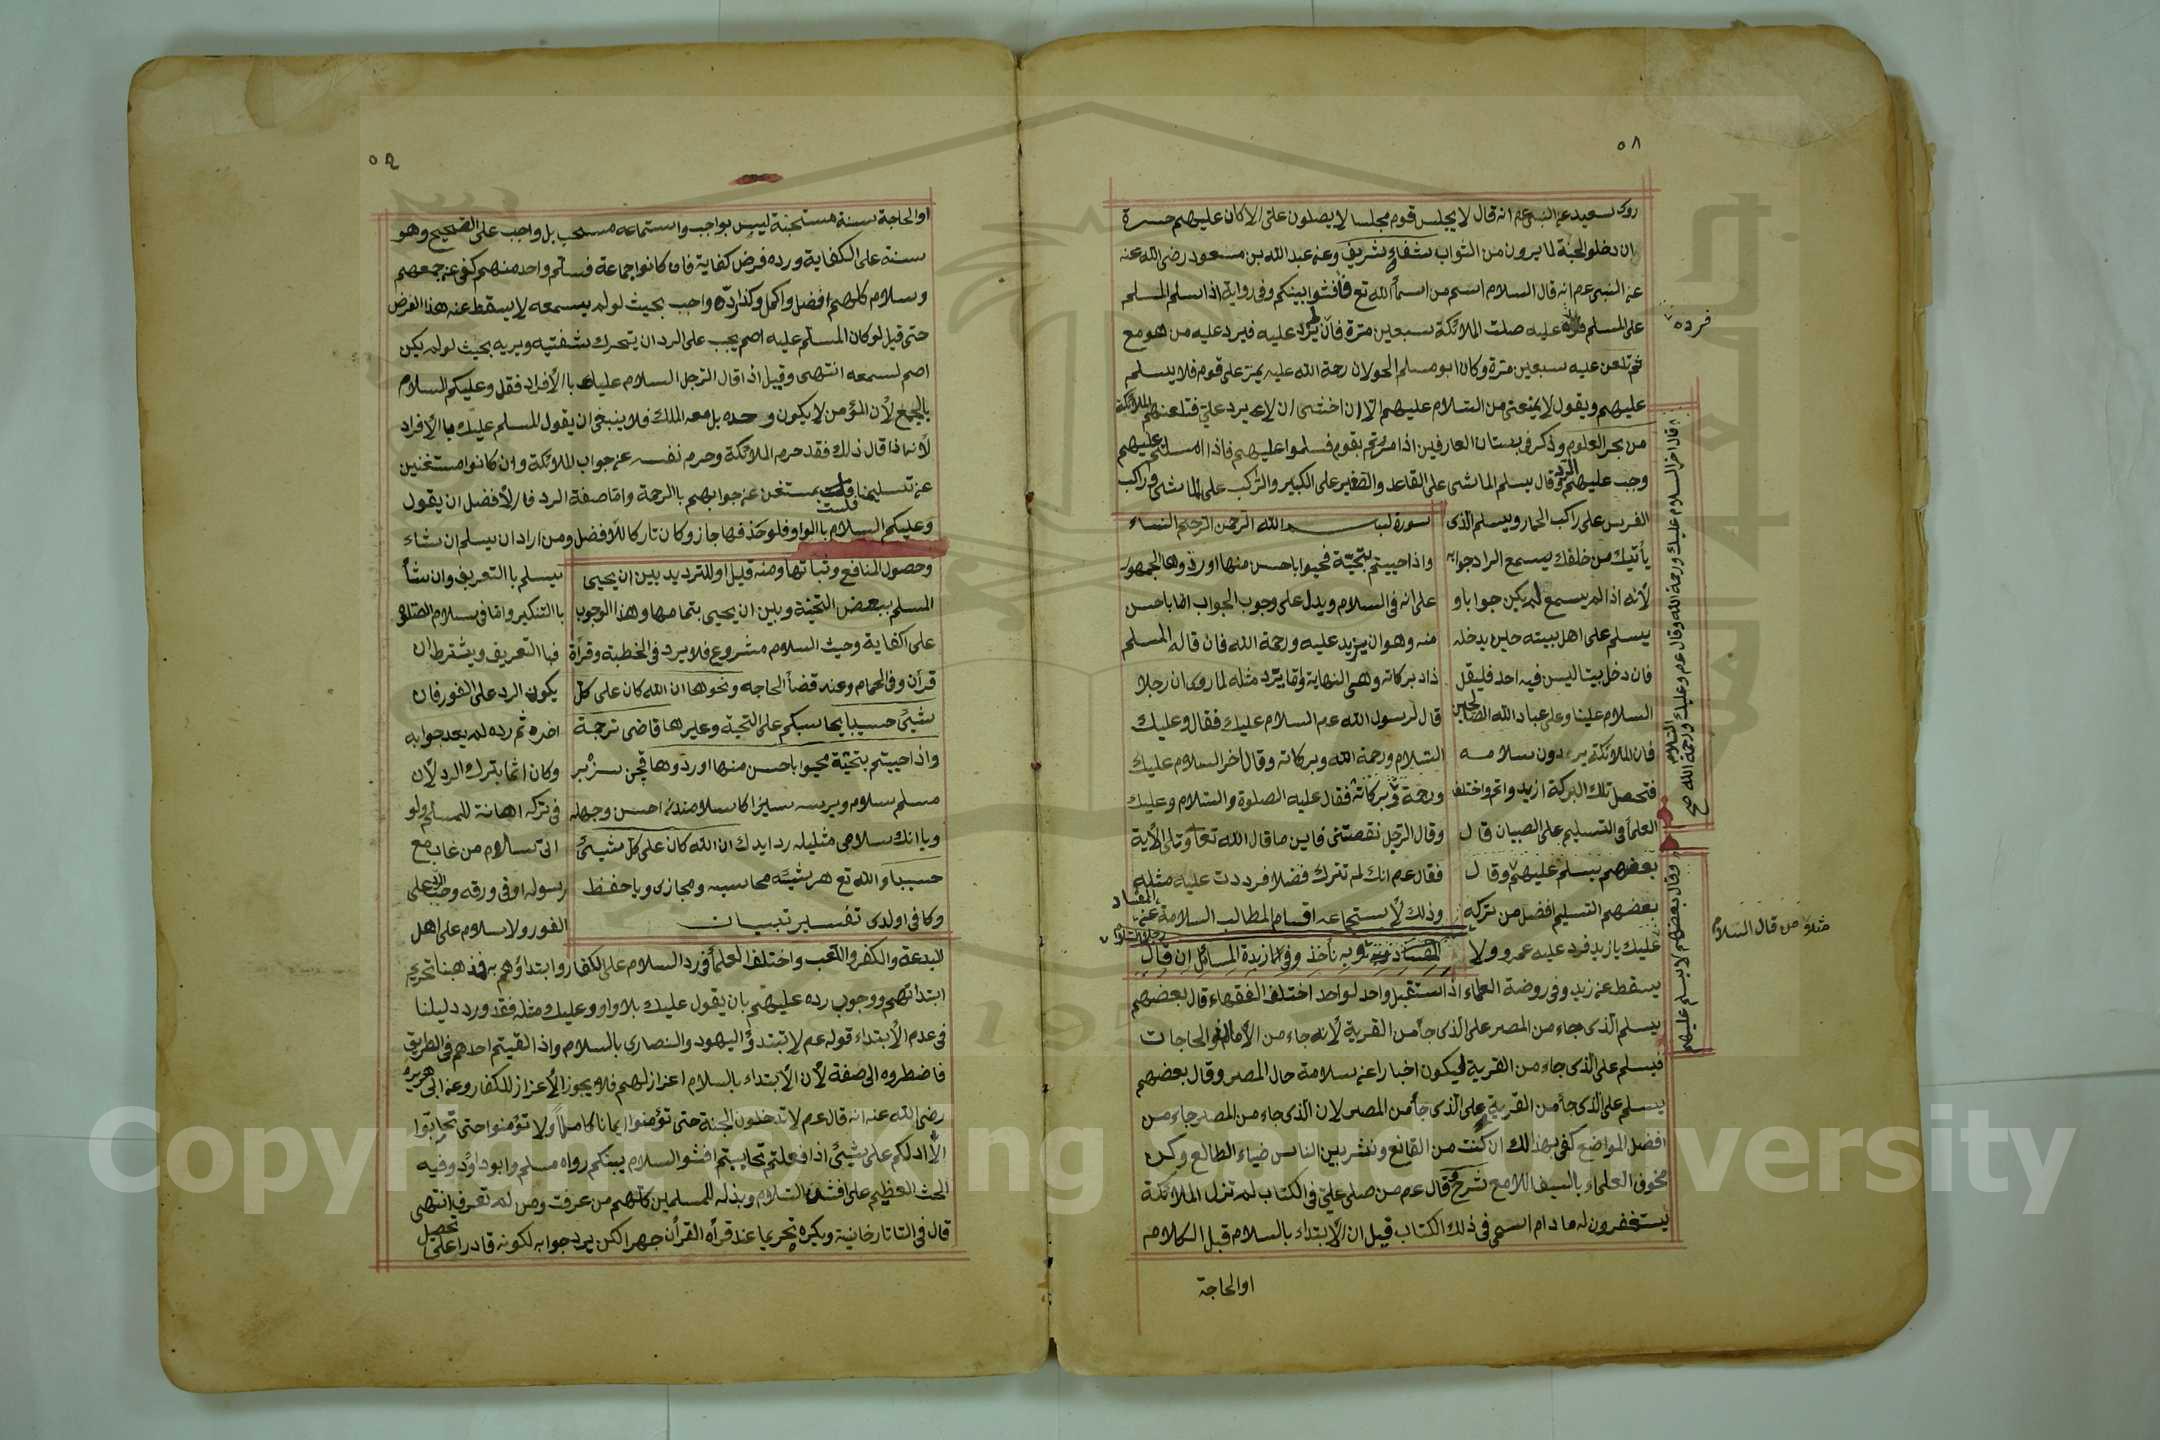 ٥٨
روى سعيد عن النبى عم انه قال لا يجلس قوم مجلسا لا يصلون على الا كان عليهم حسرة
ان دخلو الجنة لما يرون من الثواب شفاء شريف وعن عبد الله بن مسعود رضى الله عنه
عن النبى عم انه قال السلام اسم من اسمأ الله تع فأفشوا بينكم وفى رواية اذا سلم المسلم
على المسلم عليه صلت الملائكة سبعين مرة فان لم يرد عليه فيرد عليه من هو مع
فرده
ثم تلعن عليه سبعين مرة وكان ابو مسلم الحولان رحمة الله عليه يمر على قوم فلا يسلم
عليهم ويقول لا يمنعنى من السلام عليهم الا ان اخشى ان لا يرد على فتلعنهم الملائكة
من بحر العلوم وذكر فى بستان العارفين اذا مررتم بقوم فسلموا عليهم فاذا سلمتم عليهم
وجب عليهم الرد وقال يسلم الماشى على القاعد والصغير على الكبير والراكب على الماشى وراكب
الفرس على راكب الحمار ويسلم الذى
يأتيك من خلفك يسمع الراد جوابه
لأنه اذا لم يسمع لم يكن جوابا و
يسلم على اهل بيته حين يدخله
فان دخل بيتا ليس فيه احد فليقل
السلام علينا وعلى عباد الله الصالحين
فان الملائكة يردون سلامه
فتحصل تلك البركة ازيد واتم واختلف
العلمأ فى التسليم على الصبيان قال
بعضهم يسلم عليهم وقال
بعضهم التسليم افضل من تركه
عليك يا زيد فرد عليه عمرو ولا
سورة بسم الله الرحمن الرحيم النساء
واذا حييتم بتحية فحيوا باحسن منها او ردوها الجمهور
على انه فى السلام ويدل على وجوب الجواب اما باحسن
منه وهو ان يزيد عليه ورحمة الله فان قاله المسلم
زاد بركاته وهى النهاية واما يرد مثله لما روى ان رجلا
قال لرسول الله عم السلام عليك فقال وعليك
السلام ورحمة الله وبركاته وقال اخر السلام عليك
ورحمة وبركاته فقال عليه الصلوة والسلام وعليك
وقال الرجل نقصتنى فاين ما قال الله تعا وتلى الأية
فقال عم انك لم تترك فضلا فرددت عليه مثله
وذلك لأستجماعه اقسام المطالب السلامة عن
وبه نأخذ وفى ازيدة المسائل ان قال
يسقط عن زيد وفى روضة العلماء اذا استقبل واحد لواحد اختلف الفقهاء قال بعضهم
يسلم الذى جاء من المصر على الذى جأ من القرية لأنه جاء من الأمان والحاجات
فيسلم على الذى جاء من القرية ليكون اخبارا عن سلامة حال المصر وقال بعضهم
يسلم على الذى جأ من القرية على الذى جأ من المصر لان الذى جاء من المصر جاء من
افضل المواضع كفى بهذا لك ان كنت من القانع ونشر بين الناس ضياء الطالع وكن
مخوف العلماء بالسيف اللامع شرح قال عم من صلى على فى الكتاب لم تزل الملائكة
يستغفرون له ما دام اسمى فى ذلك الكتاب قيل ان الأبتداء بالسلام قبل الكلام
او الحاجة
قال اخر السلام عليك ورحمة الله وقال عم وعليك السلام ورحمة الله صح
وقال بعضهم لا يسلم عليهم
مثلا من قال السلام
٥٩
او الحاجة سنة مستحبة ليس بواجب واستماعه مستحب بل واجب على الصحيح وهو
سنة على الكفاية ورده فرض كفاية فان كانوا جماعة فسلم واحد منهم كفى عن جمعهم
وسلام كلهم افضل واكمل وكذا رده واجب بحيث لو لم يسمعه لا يسقط عنه هذا الفرض
حتى قيل لو كان المسلم عليه اصم يجب على الراد ان يتحرك شفتيه ويريه بحيث لو لم يكن
اصم لسمعه انتهى وقيل اذا قال الرجل السلام عليك باالأفراد فقل وعليكم السلام
بالجمع لأن المؤمن لا يكون وحده بل معه الملك فلا ينبغى ان يقول المسلم عليك باالأفراد
لأنه اذا قال ذلك فقد حرم الملائكة وحرم نفسه عن جواب الملائكة وان كانوا مستغنين
عن تسليمنا فلست بمستغن عن جوابهم باالرحمة واما صفة الرد فاالأفضل ان يقول
وعليكم السلام باالواو فلو حذفها جاز وكان تاركا للأفضل ومن اراد ان يسلم ان شاء
وحصول المنافع وثباتها ومنه قيل او للترديد بين ان يحيى
المسلم ببعض التحية وبين ان يحيى بتمامها وهذا الوجوب
على الكفاية وحيث السلام مشروع فلا يرد فى الخطبة وقرأة
قرأن وفى الحمام وعند قضأ الحاجه ونحوها ان الله كان على كل
شيئ حسيبا يحاسبكم على التحية وغيرها قاضى ترجمة
واذا حييتم بتحية فحيوا باحسن منها او ردوها قچن سزه بر
مسلم سلام ويرسه سيز اكا سلامندن احسن وجهله
ويا انك سلامى مثليله رد ايدك ان الله كان على كل شيئ
حسيبا والله تع هر شيئه محاسبه ومجازى ويا حفظ
وكافى اولدى تفسير تبيان
يسلم باالتعريف وان شأ
باالتنكير واما فى سلام الصلوة
فباالتعريف ويشترط ان
يكون الرد على الفور فان
اخره ثم رده لم يعد جوابه
وكان اثما بترك الرد لأن
فى تركه اهانة للمسلم ولو
اتى سلام من غاب مع
رسوله او فى ورقه وجب الرد على
الفور ولا سلام على اهل
البدعة والكفر واللعب واختلف العلمأ فى رد السلام على الكفار وابتداؤهم به فمذهبنا تحريم
ابتدائهم ووجوب رده عليهم بان يقول عليك بلا واو وعليك ومثله فقد ورد دليلنا
فى عدم الأبتداء قوله عم لا تبتدؤ اليهود والنصارى بالسلام واذا لقيتم احدهم فى الطريق
فاضطروه الى ضفة لأن الأبتداء بالسلام اعزاز لهم فلا يجوز الأعزاز للكفار وعن ابى هريره
رضى الله عنه انه قال عم لا تدخلون الجنة حتى تؤمنوا ايمانا كاملا ولا تؤمنوا حتى تحابوا
الا ادلكم على شيئ اذا فعلتم تحابيتم افشو السلام بينكم رواه مسلم وابو داود وفيه
الحث العظيم على افشاء السلام وبذله للمسلمين كلهم من عرفت ومن لم تعرف انتهى
قال فى التاتارخانية ويكره تحريما عند قرأة القرأن جهرا لكن يرد جوابه لكونه قادرا على تحصيل
Copyright © King Saud University